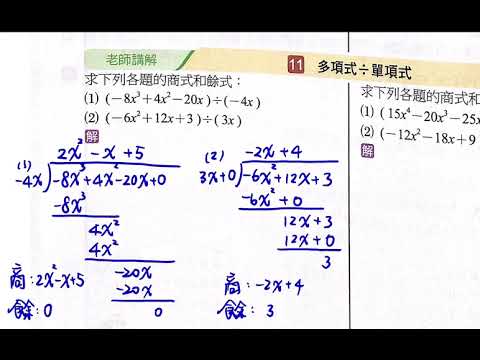 老師講解
11 多項式÷單項式
求下列各題的商式和餘式：
(1) (－8x³＋4x²－20x)÷(－4x)
(2) (－6x²＋12x＋3)÷(3x)
解
(1)
2x²－x＋5
-4x)-8x³+4x²-20x+0
-8x³
4x²
4x²
-20x
-20x
0
商：2x²-x+5
餘：0
(2)
-2x+4
3x+0)-6x²+12x+3
-6x²+0
12x+3
12x+0
3
商：-2x+4
餘：3
求下列各題的商式和
(1) (15x⁴－20x³－25x
(2) (－12x²－18x＋9
解